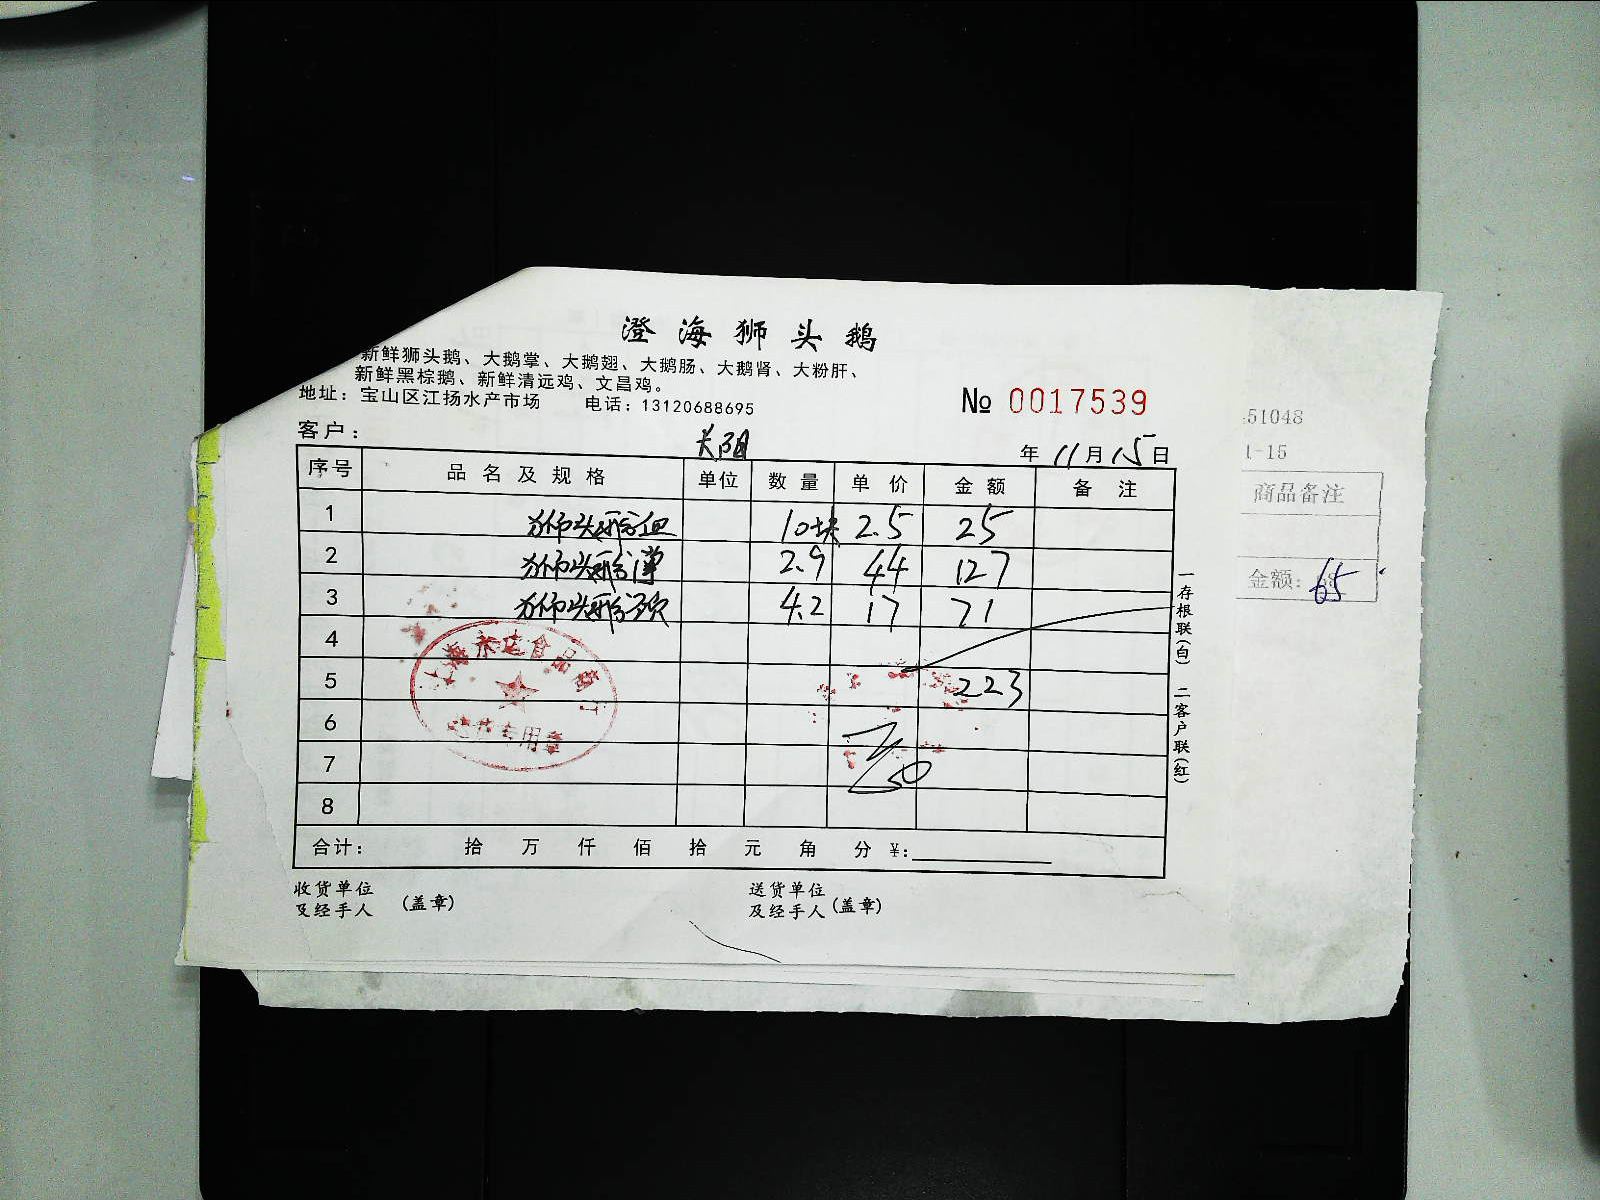 澄海狮头鹅
新鲜狮头鹅、大鹅掌、大鹅翅、大鹅肠、大鹅肾、大粉肝、
新鲜黑棕鹅、新鲜清远鸡、文昌鸡。
地址：宝山区江扬水产市场 电话：13120688695
№ 0017539
客户： 长阳 年 11月15日
序号 品名及规格 单位 数量 单价 金额 备注
1 狮头鹅血 10块 2.5 25
2 狮头鹅 2.9 44 127
3 狮头鹅头 4.2 17 71
4
5 223
6
7
8
合计： 拾 万 仟 佰 拾 元 角 分 ¥：
收货单位
及经手人 （盖章）
送货单位
及经手人（盖章）
一存根联（白） 二客户联（红）
食品商行
专用章
51048
1-15
商品备注
金额： 65